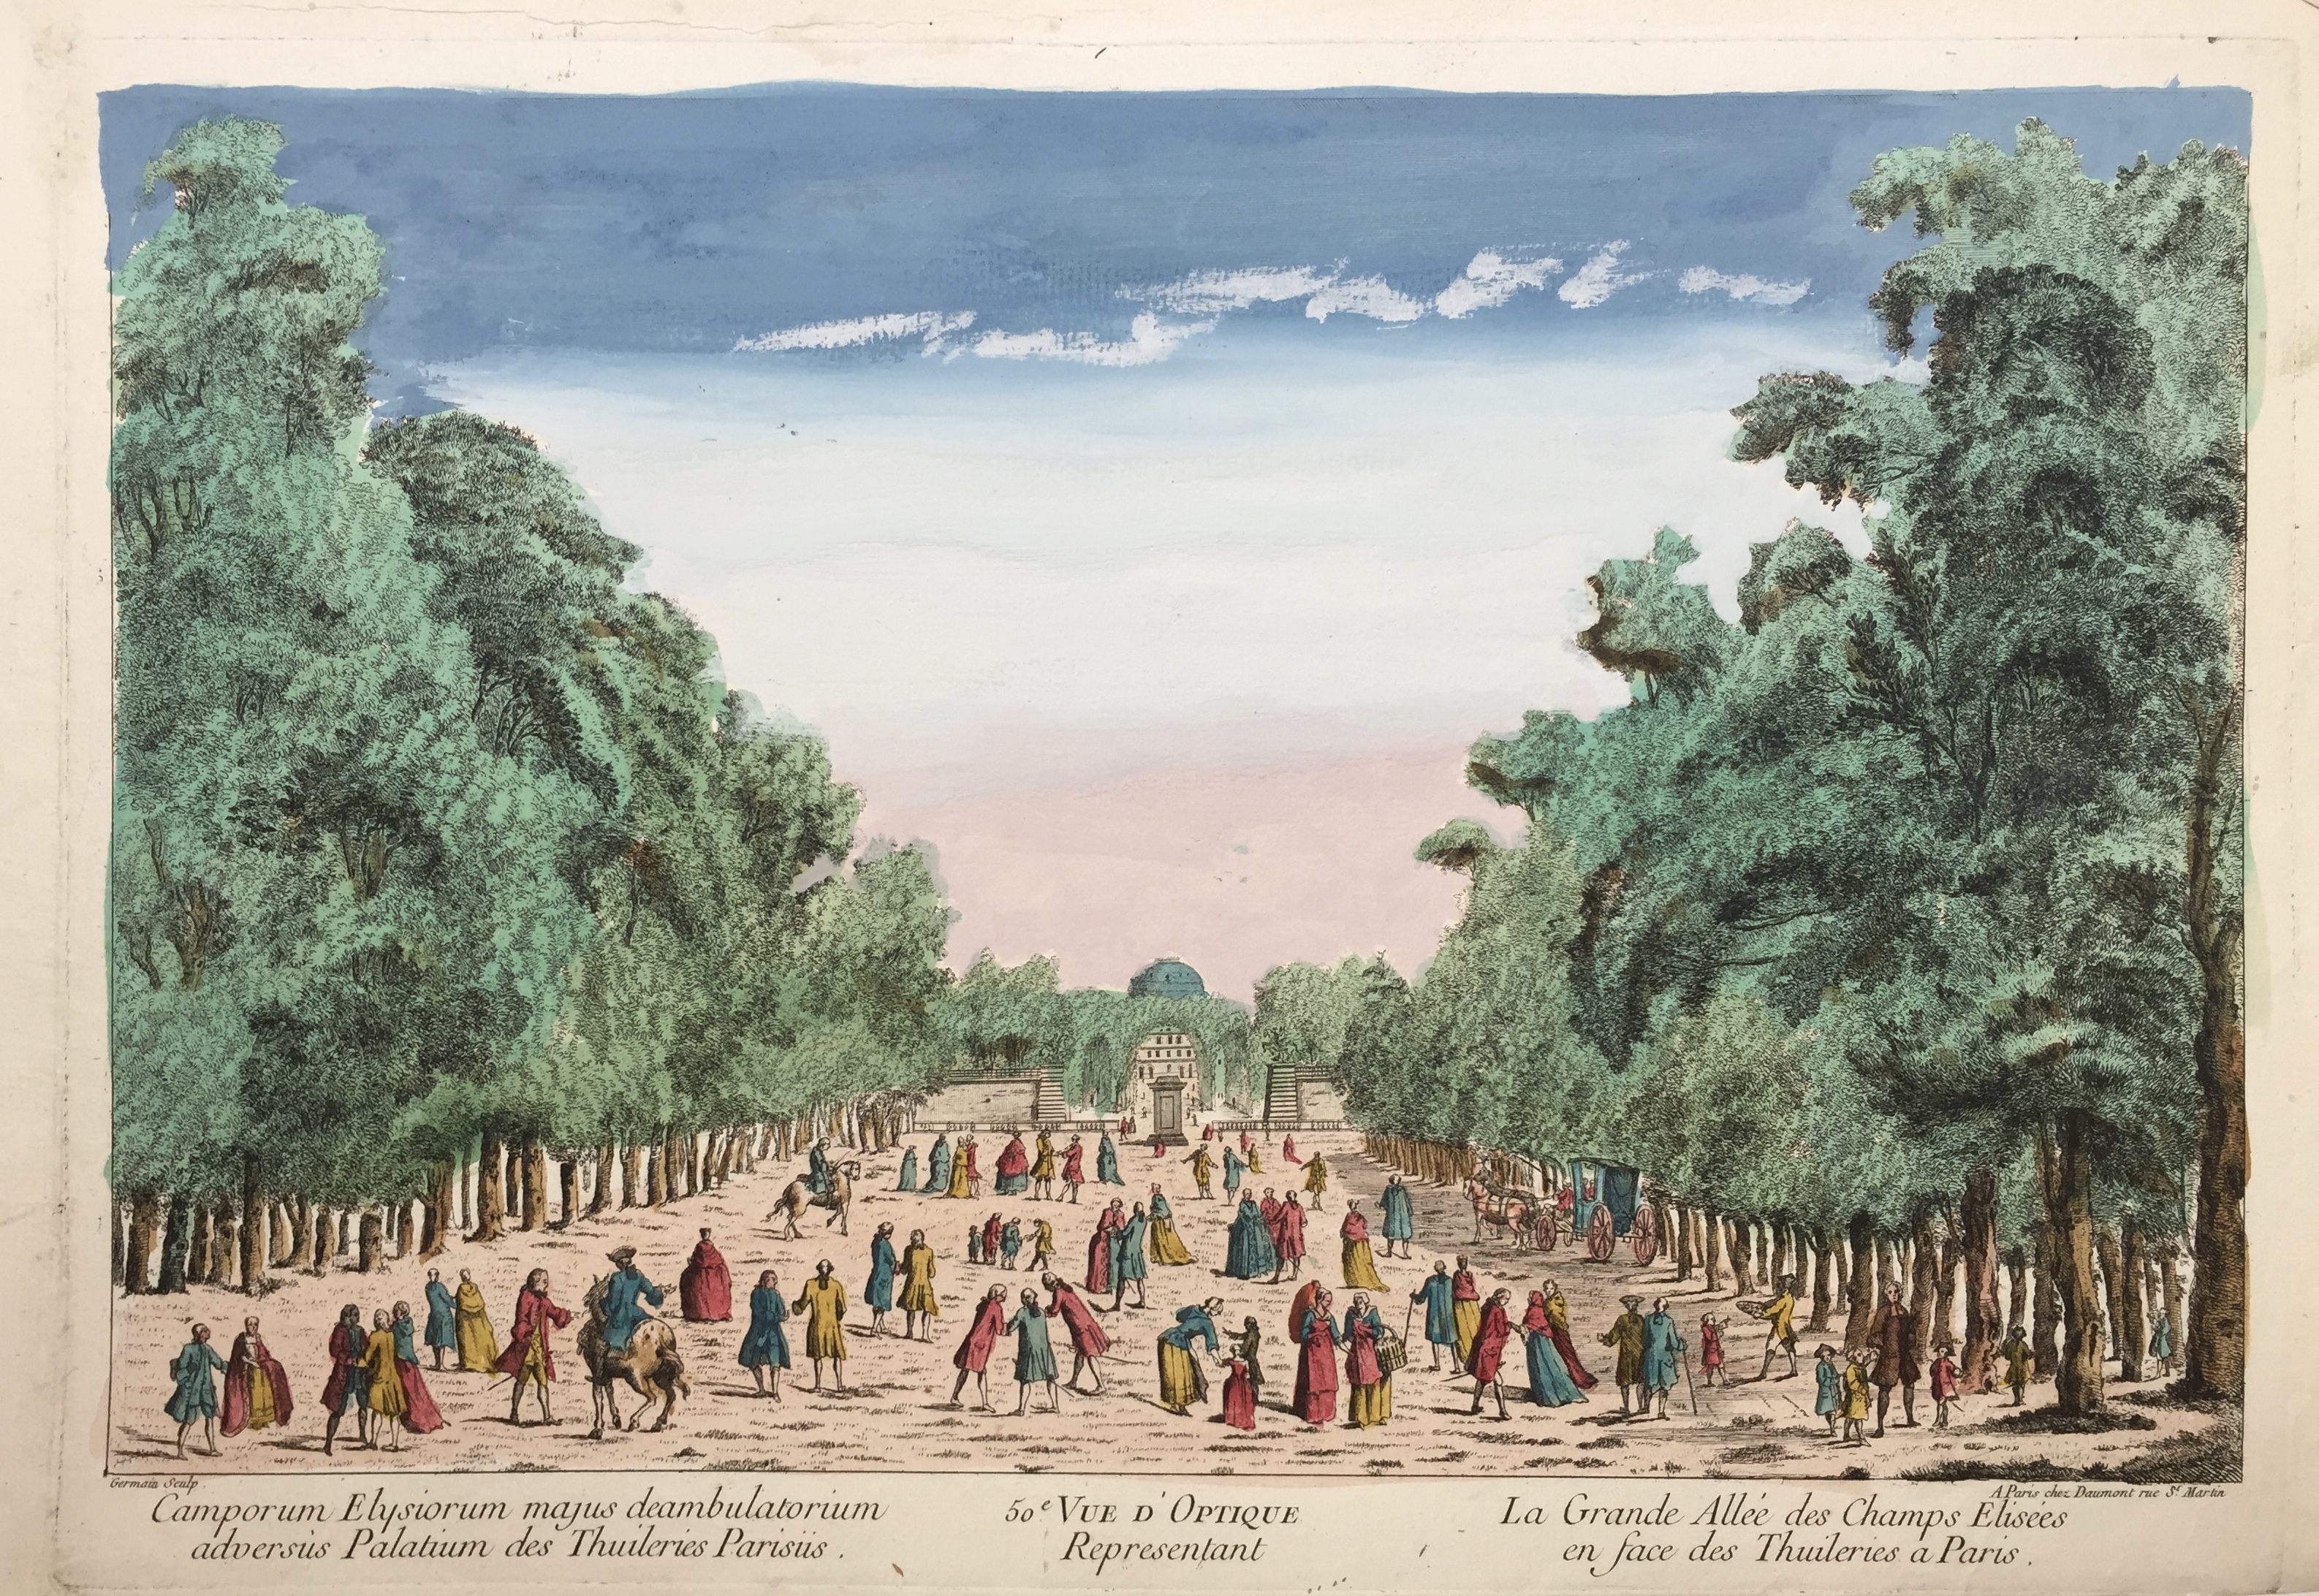 Germain Sculp
A Paris chez Daumont rue St Martin
Camporum Elysiorum majus deambulatorium
adversùs Palatium des Thuileries Parisiis.
50e VUE D'OPTIQUE
Representant
La Grande Allée des Champs Elisées
en face des Thuileries a Paris.